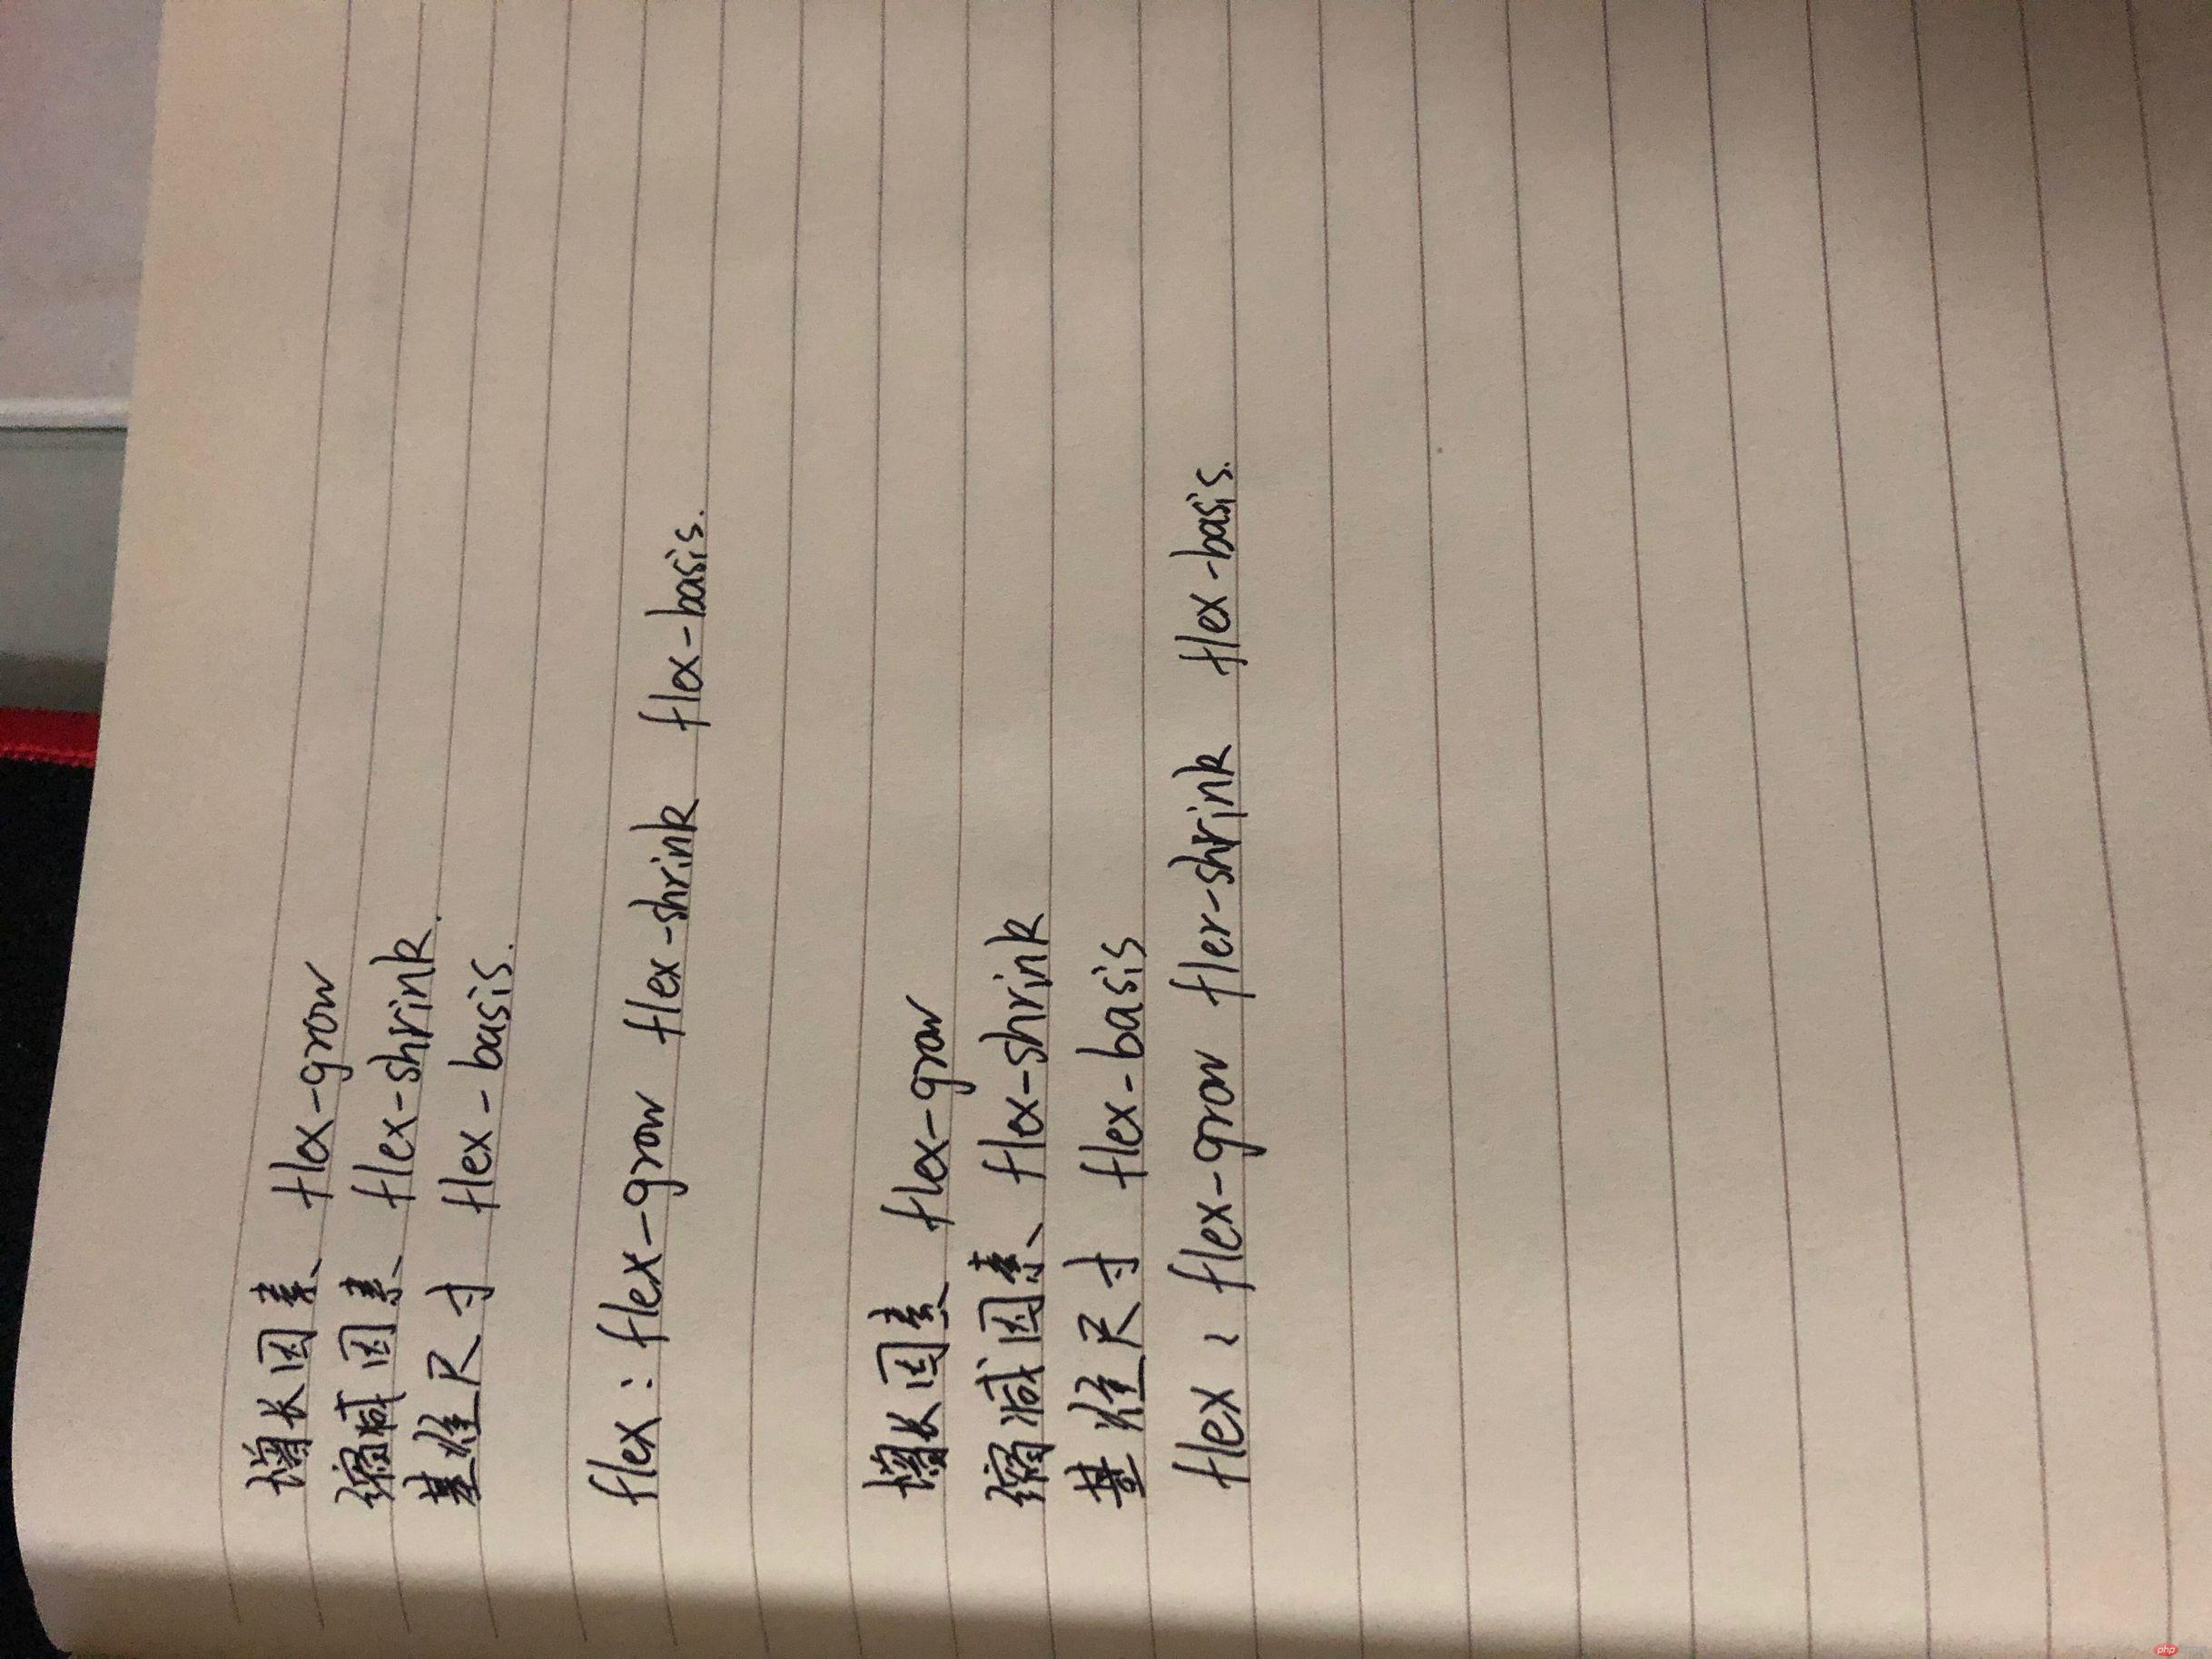 增长因素 flex-grow
缩减因素 flex-shrink.
基准尺寸 flex-basis.
flex: flex-grow flex-shrink flex-basis.
增长因素 flex-grow
缩减因素 flex-shrink
基准尺寸 flex-basis
flex: flex-grow fler-shrink flex-basis.
php